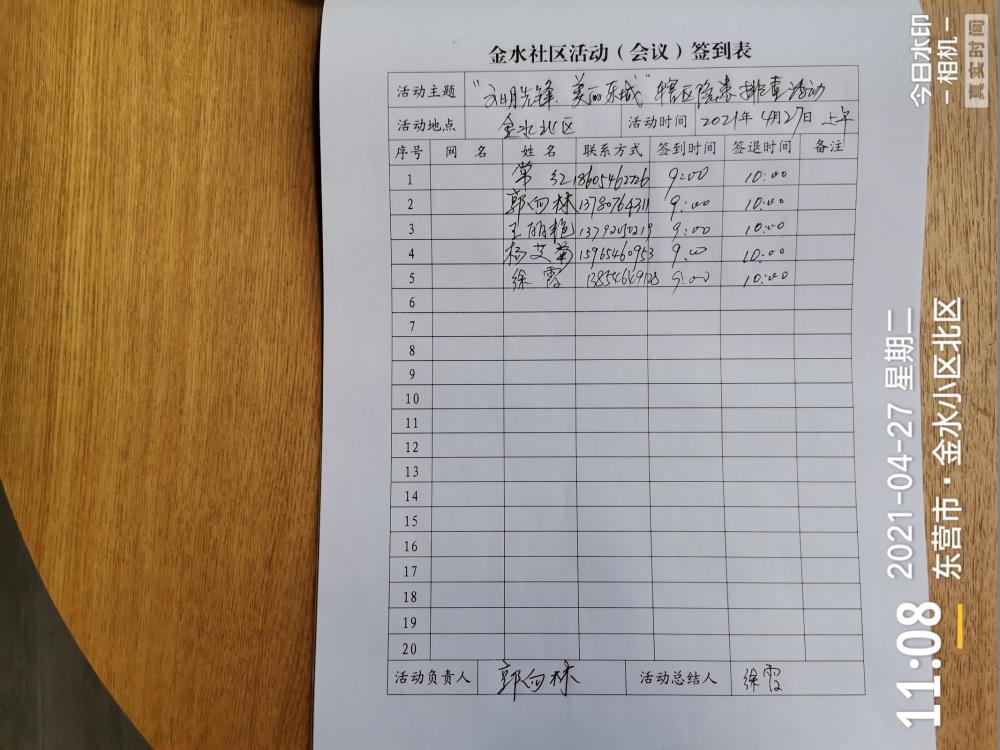 金水社区活动(会议)签到表
活动主题 "文明先锋、美丽东城"辖区隐患排查活动
活动地点 金水北区 活动时间 2021年4月27日 上午
序号 网 名 姓 名 联系方式 签到时间 签退时间 备注
1 常 红 18605462726 9:00 10:00
2 郭向林 13780764311 9:00 10:00
3 王丽艳 13792050219 9:00 10:00
4 杨艾菊 15965460953 9:00 10:00
5 徐 霞 9:00 10:00
6
7
8
9
10
11
12
13
14
15
16
17
18
19
20
活动负责人 郭向林 活动总结人 徐霞
今日水印
-相机-
真实时间
11:08
2021-04-27 星期二
东营市·金水小区北区